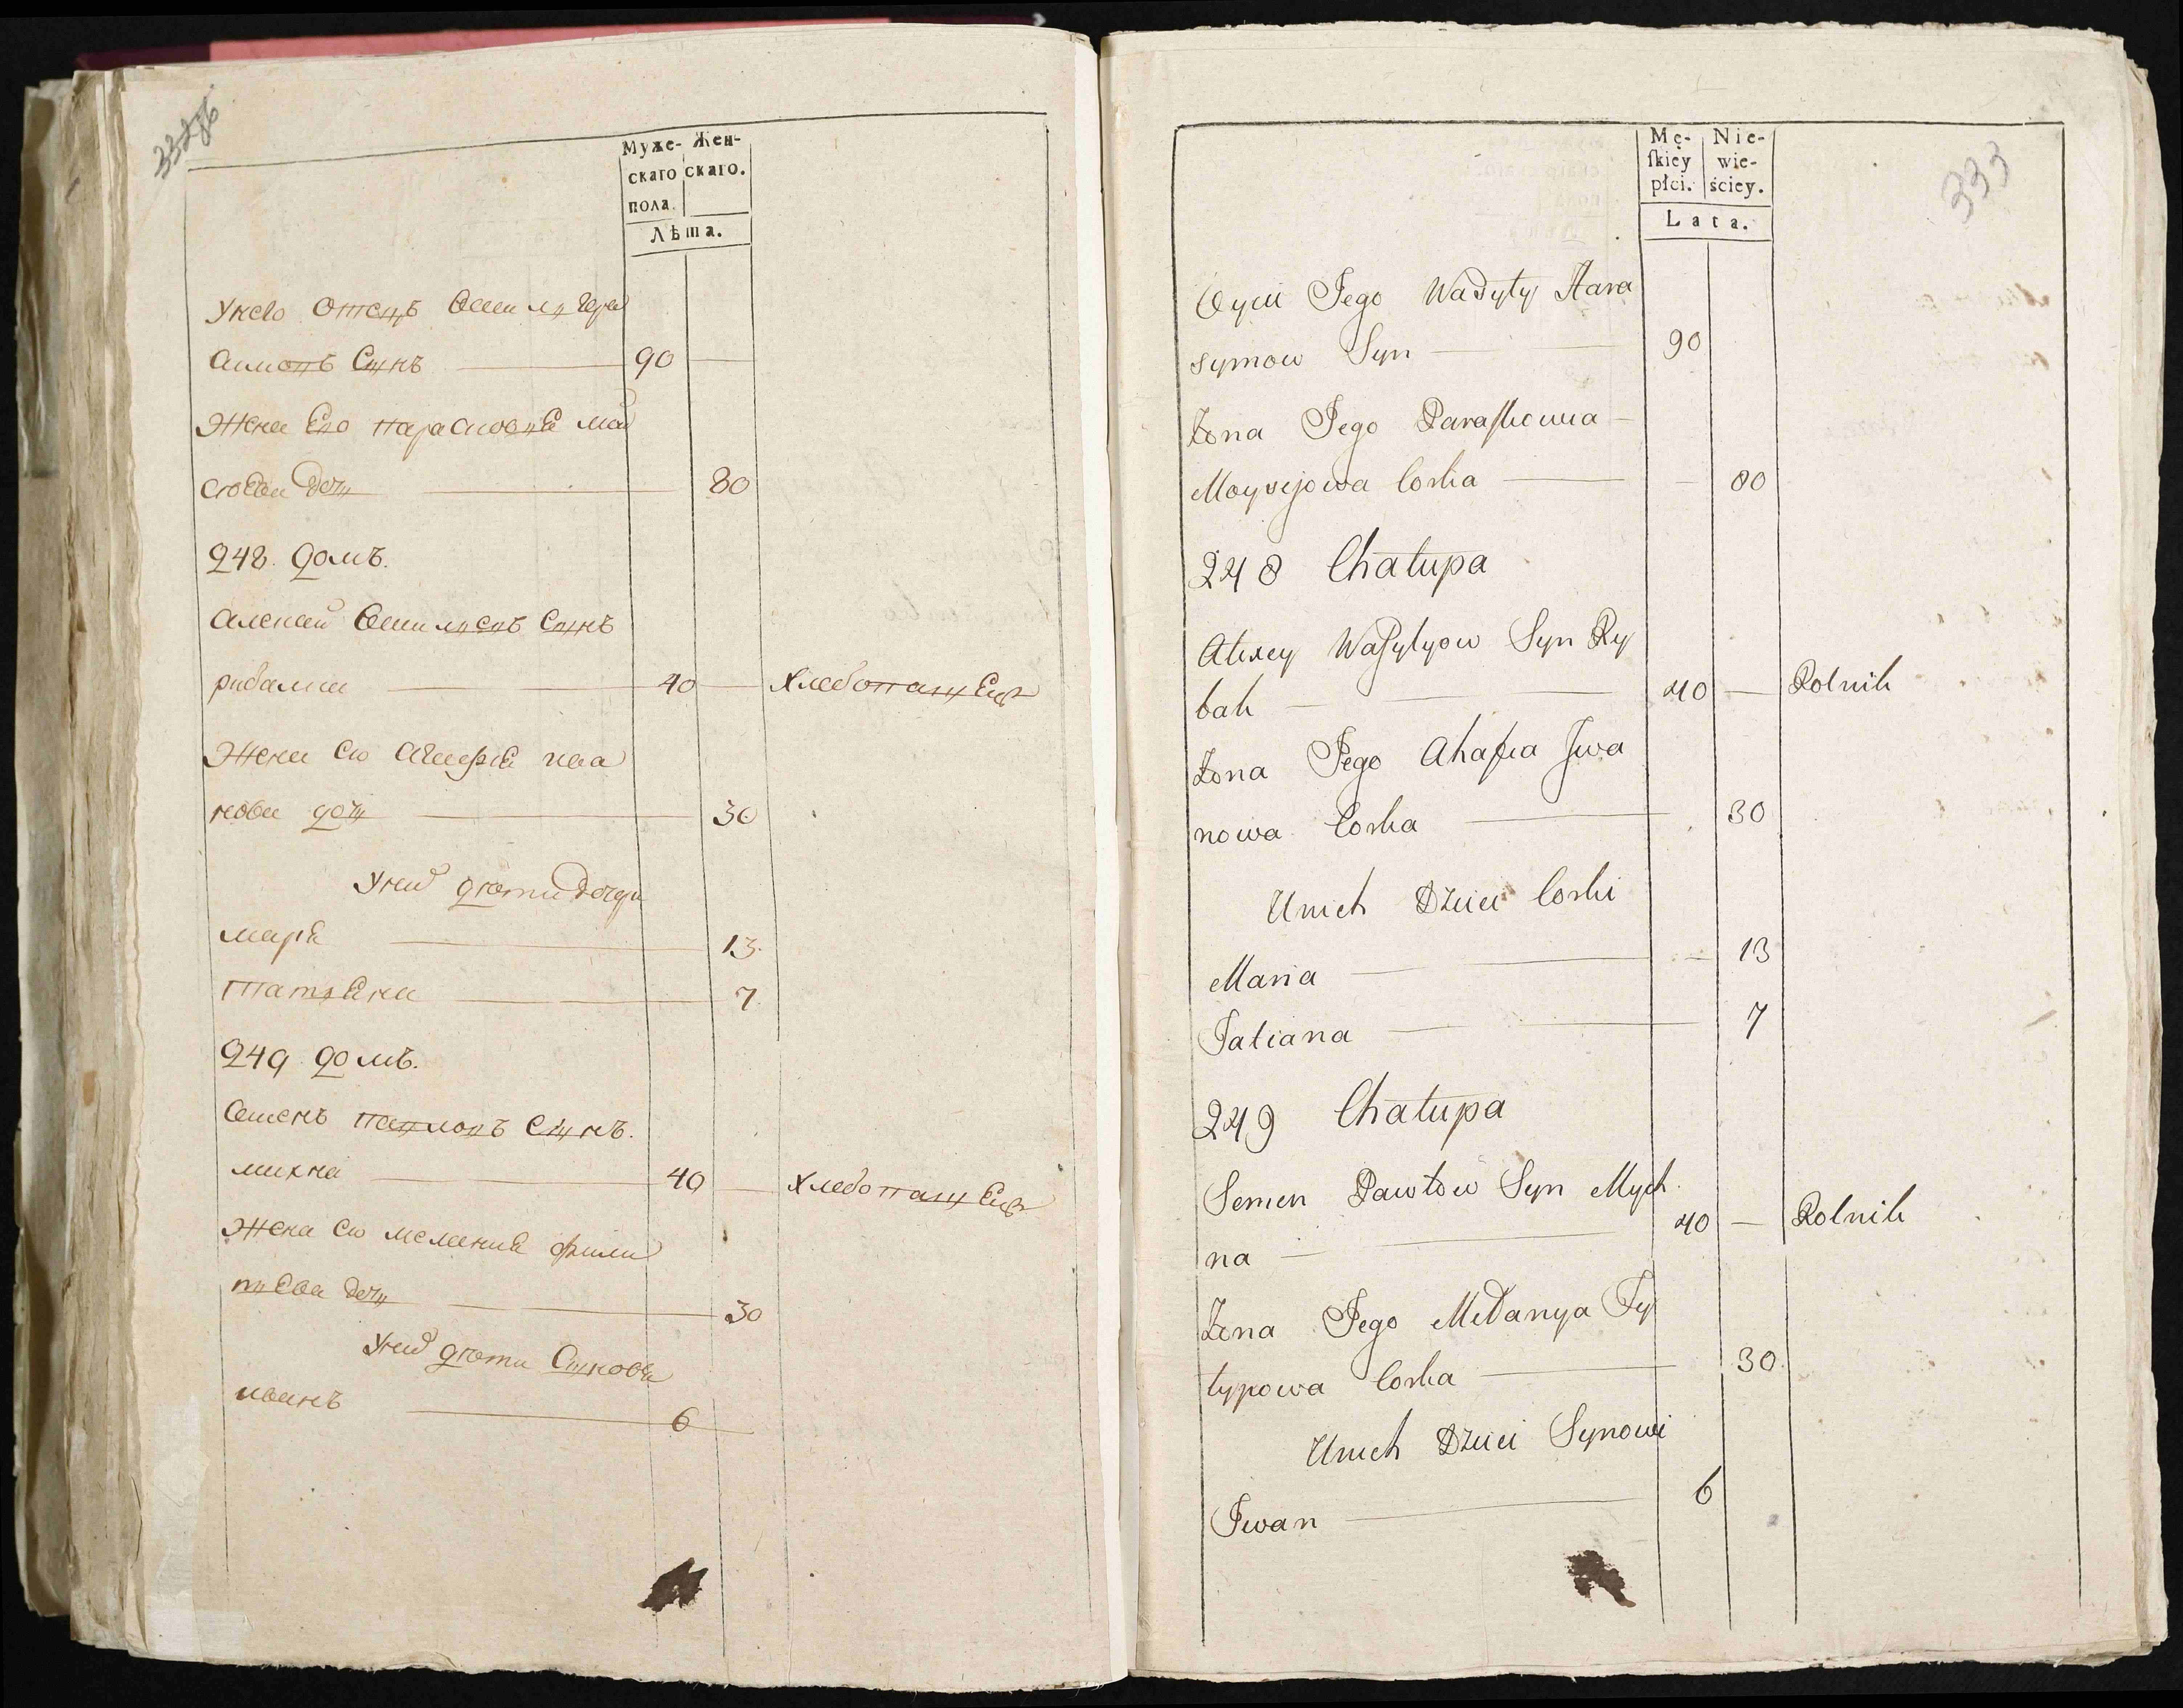 332об
Муже- Жен-
скаго скаго.
пола.
Лѣта.
У него Отецъ Василь Гера
симовъ Сынъ 90
Жена Его Парасковiя Мой
сѣева дочь 80
248. домъ.
Алексей Василiевъ Сынъ
рибалка 40 Хлебопашецъ
Жена Его Агафiя ива
нова дочь 30
У них дѣти дочери
Марiя 13.
Татiяна 7.
249 домъ.
Семенъ Павловъ Сынъ.
михна 40 Хлебопашецъ
Жена Его мелания фили
пъева дочь 30
У них дѣти Сыновя
иванъ 6
333
Mę- Nie-
skiey wie-
płci. ściey.
Lata.
Oyciec Jego Wasyly Hara
symow Syn 90
Zona Jego Paraskowia
Moysejowa Corka 80
248 Chałupa
Alexey Wasylyow Syn Ry
bak 40 Rolnik
Zona Jego Ahafia Iwa
nowa Corka 30
U nich Dzieci Corki
Maria 13
Tatiana 7
249 Chałupa
Semen Pawłow Syn Mych
na 40 Rolnik
Zona Jego Mełanya Fy
lypowa Corka 30
U nich Dzieci Synowi
Iwan 6